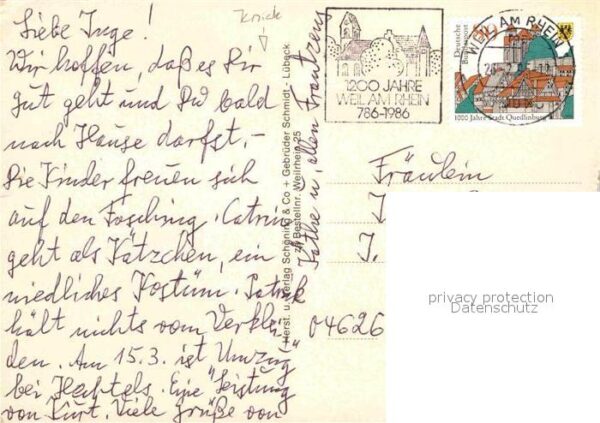 Liebe Inge!
Wir hoffen, daß es Dir
gut geht und Du bald
nach Hause darfst. -
Die Kinder freuen sich
auf den Fasching. Catrin
geht als Kätzchen, ein
niedliches Kostüm. Patrik
hält nichts vom Verklei
den. Am 15.3. ist Umzug
bei Hechtels. Eine "Leistung"
von Kurt. Viele Grüße von
Käthe u. allen
Knick
Herst. u. Verlag Schöning & Co + Gebrüder Schmidt · Lübeck
Bestellnr. Weilrhein 25
1200 JAHRE
WEIL AM RHEIN
786-1986
WEIL AM RHEIN
Deutsche
Bundespost
1000 Jahre Stadt Quedlinburg
Fräulein
J
J.
04626
privacy protection
Datenschutz